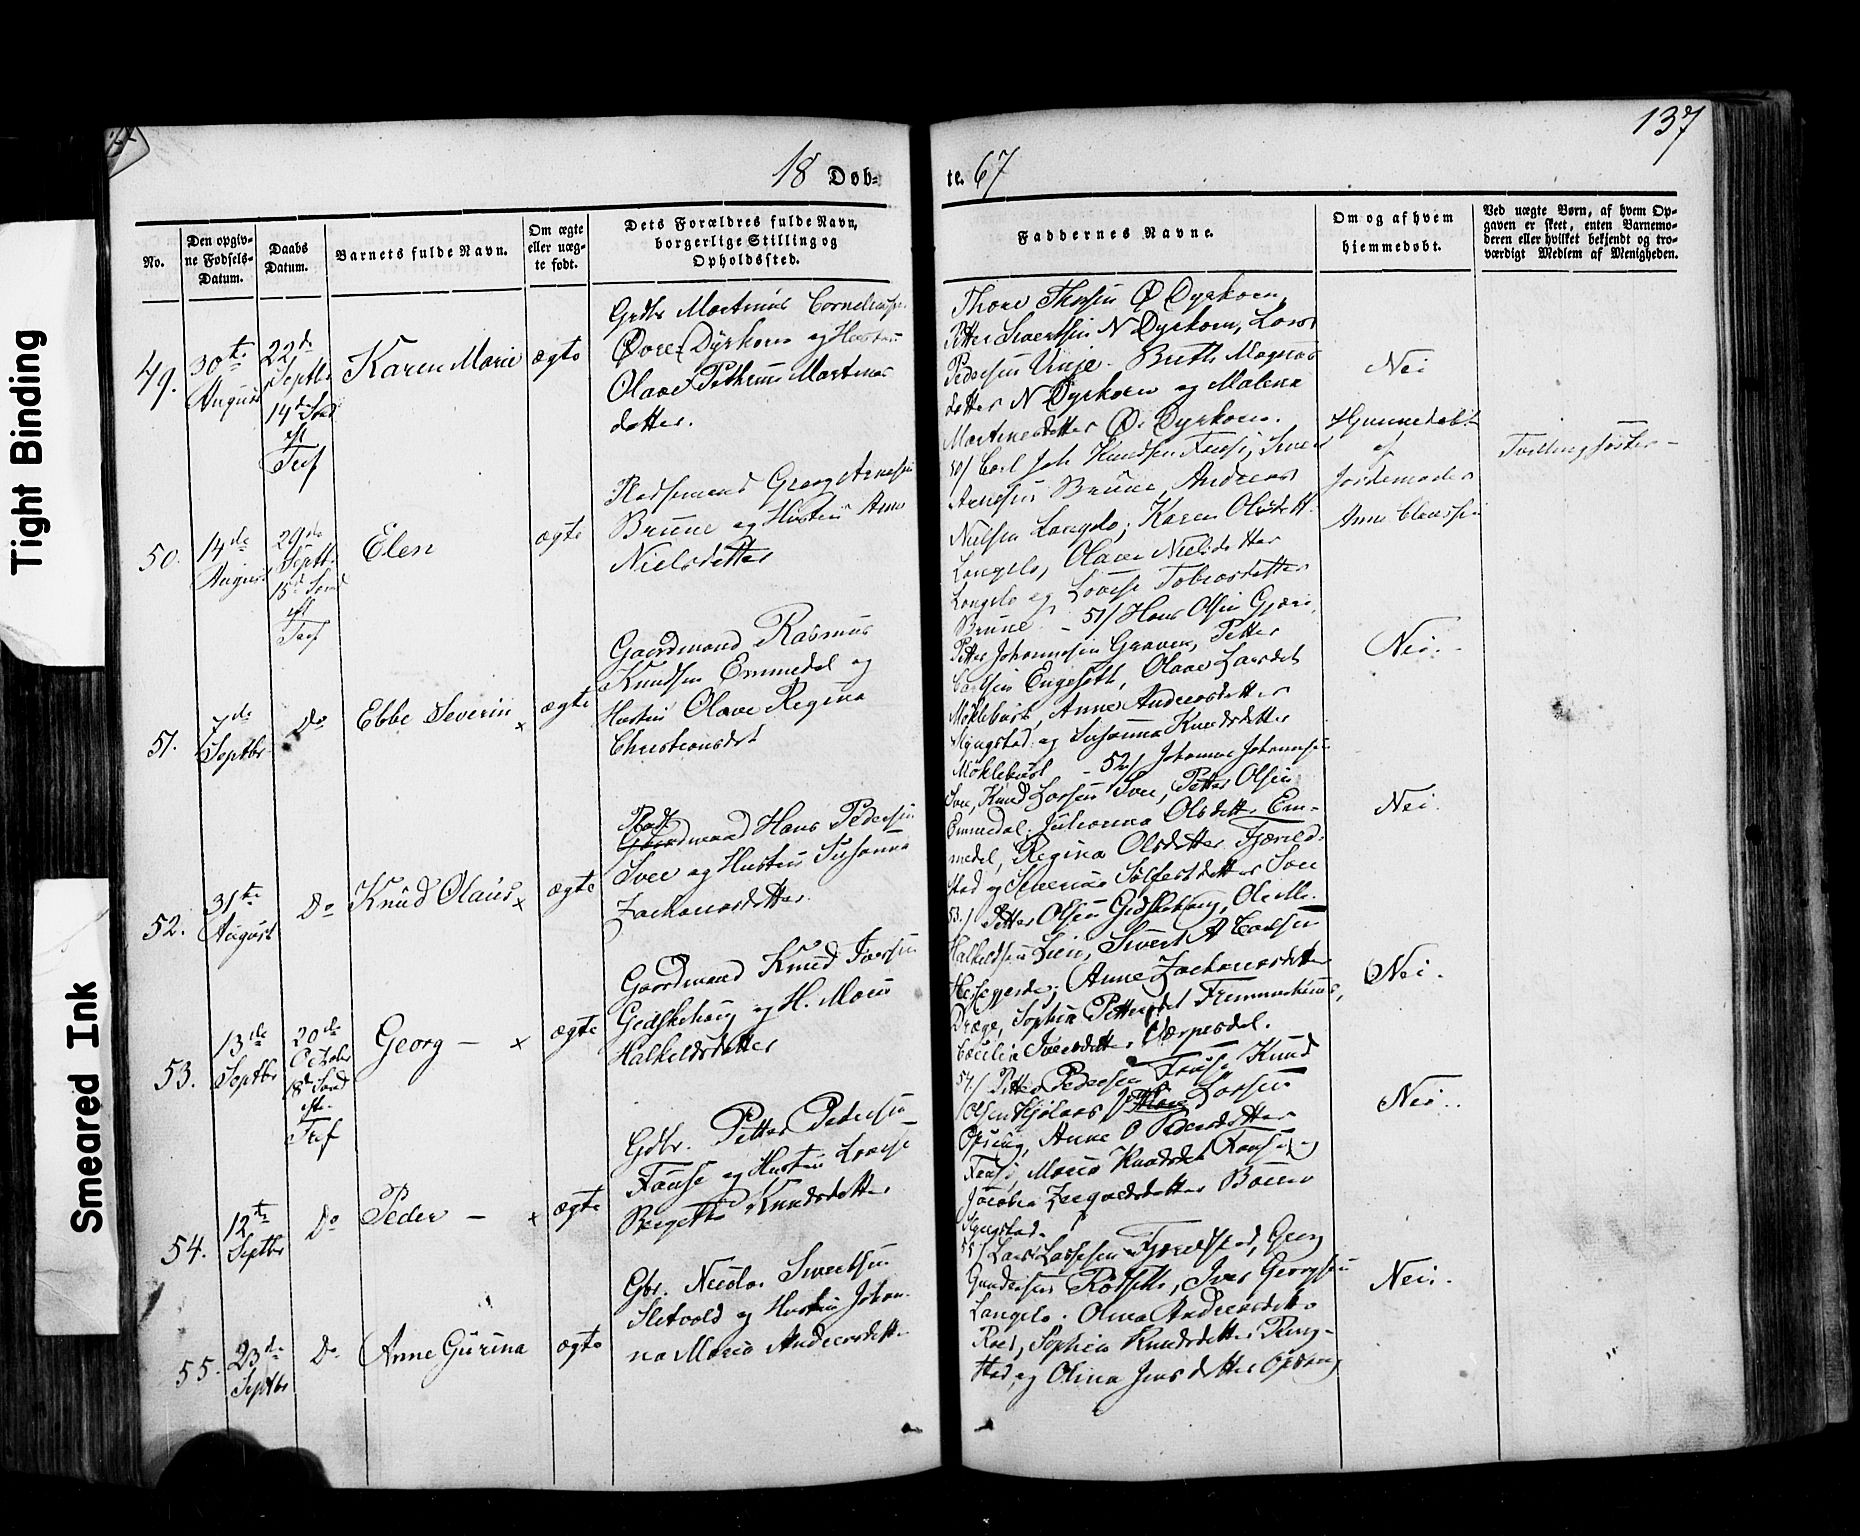 137
18 Døb-
te. 67
Tight Binding
Smeared Ink
No.
Den opgiv-
ne Fødsels-
Datum.
Daabs
Datum.
Barnets fulde Navn.
Om ægte
eller uæg-
te født.
Dets Forældres fulde Navn,
borgerlige Stilling og
Opholdssted.
Faddernes Navne.
Om og af hvem
hjemmedøbt.
Ved uægte Børn, af hvem Op-
gaven er skeet, enten Barnemo-
deren eller hvilket bekjendt og tro-
værdigt Medlem af Menigheden.
49.
30te
August
22de
Septbr
14de Snd
eft
Tref
Karen Marie
ægte
Gdbr Martinus Corneliuss.
Øvre Dyrkorn og Hustru
Olave Pethrine Martinus
datter.
Thore Thorsen Ø Dyrkorn,
Petter Sivertsen N Dyrkorn, Lars
Pedersen Vinje. Brith Magnus
datter N Dyrkorn og Malena
Martinusdatter Ø. Dyrkorn.
Nei
50.
14de
August
29de
Septb.
15de Snd
eft
Tref
Elen
ægte
Pladsemand Georg Arnesen
Brune og Hustru Anne
Nielsdatter
50/ Carl Joh Knudsen Fause, Iver
Arnesen Brune, Andreas
Nielsen Langelo, Karen Olsdatt.
Langelo, Olave Nielsdatter
Langelo og Lovise Tobiasdatter
Brune. -
Hjemmedøbt
af
Jordemoder
Anne Claussen
Tvillingsøster -
51.
7de
Septbr
Do
Ebbe Severin x
ægte
Gaardmand Rasmus
Knudsen Emmedal og
Hustru Olave Regina
Christiansdt
51/ Hans Olsen Gjære,
Petter Johannesen Graven, Petter
Carlsen Engeseth, Olave Larsdet
Møklebust, Anne Andersdatter
Myngstad og Susanna Knudsdatter
Møklebust -
Nei. -
52.
31te
August
Do
Knud Olaus x
ægte
Plads
Gaardmand Hans Pedersen
Svee og Hustru Susanna
Zachariasdatter.
52/ Johannes Johannesen
Svee, Knud Larsen Svee, Petter Olsen
Emmedal. Julianna Olsdatter Em-
medal, Regina Olsdatter Fjæreld-
stad og Severine Solfestdatter Svee
Nei.
53.
13de
Septbr
20de
October
18de Snd
eft.
Tref
Georg - x
ægte
Gaardmand Knud Iversen
Gedskehaug og H. Marie
Halkeldsdatter
53./ Petter Olsen Gedskehaug, Ole M.
Halkeldsen Lien, Sivert A Carlsen
Hessegjerde, Anne Zachariasdatter
Drage, Sophie Pettersdet Fremmerhuus,
Cecilia IversdatterVærpesdal.
Nei.
54.
12te
Septbr
Do
Peder - x
ægte
Gdbr. Petter Pedersen
Fause og Hustru Lovise
Bergette Knudsdatter
54/ Petter Pedersen Fause, Knud
Olsen Kjølaas, Larsen
Opsaug, Anne O Pedersdatter
Fause, Marie Knudsdet Fause og
Jacobia Zergaldsdatter Baee
Nei..
55.
23de
Septbr
Do
Anne Gurina
ægte
Gbr. Nicolai Sivertsen
Sletvold og Hustru Johan-
na Marie Andersdatter
55/ Lars Larssen Fjæreldstad, Georg
Gundersen Rødseth, Iver Georgsen
Langelo. Olina Andreasdatter
Roed, Sophie Knudsdatter Ring-
stad og Olina Jensdatter Opsaug
Nei.